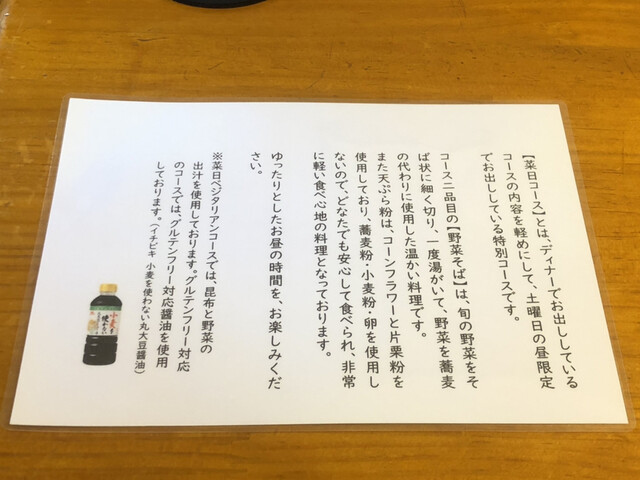 【菜日コース】とは、ディナーでお出ししている
コースの内容を軽めにして、土曜日の昼限定
でお出ししている特別コースです。
コース二品目の【野菜そば】は、旬の野菜をそ
ば状に細く切り、一度湯がいて、野菜を蕎麦
の代わりに使用した温かい料理です。
また天ぷら粉は、コーンフラワーと片栗粉を
使用しており、蕎麦粉・小麦粉・卵を使用し
ないので、どなたでも安心して食べられ、非常
に軽い食べ心地の料理となっております。
ゆったりとしたお昼の時間を、お楽しみくだ
さい。
※菜日ベジタリアンコースでは、昆布と野菜の
出汁を使用しております。グルテンフリー対応
のコースでは、グルテンフリー対応醤油を使用
しております。（イチビキ 小麦を使わない丸大豆醤油）
小麦を
使わない